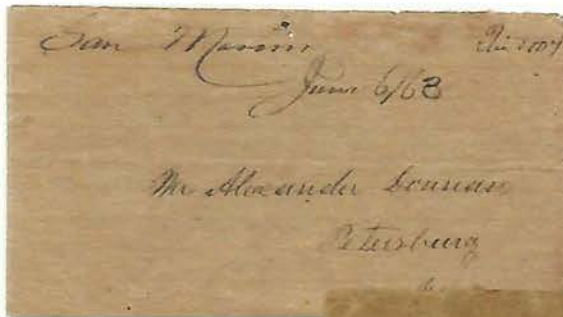 San Marino
June 6/63
Mr Alexander Donnan
Petersburg